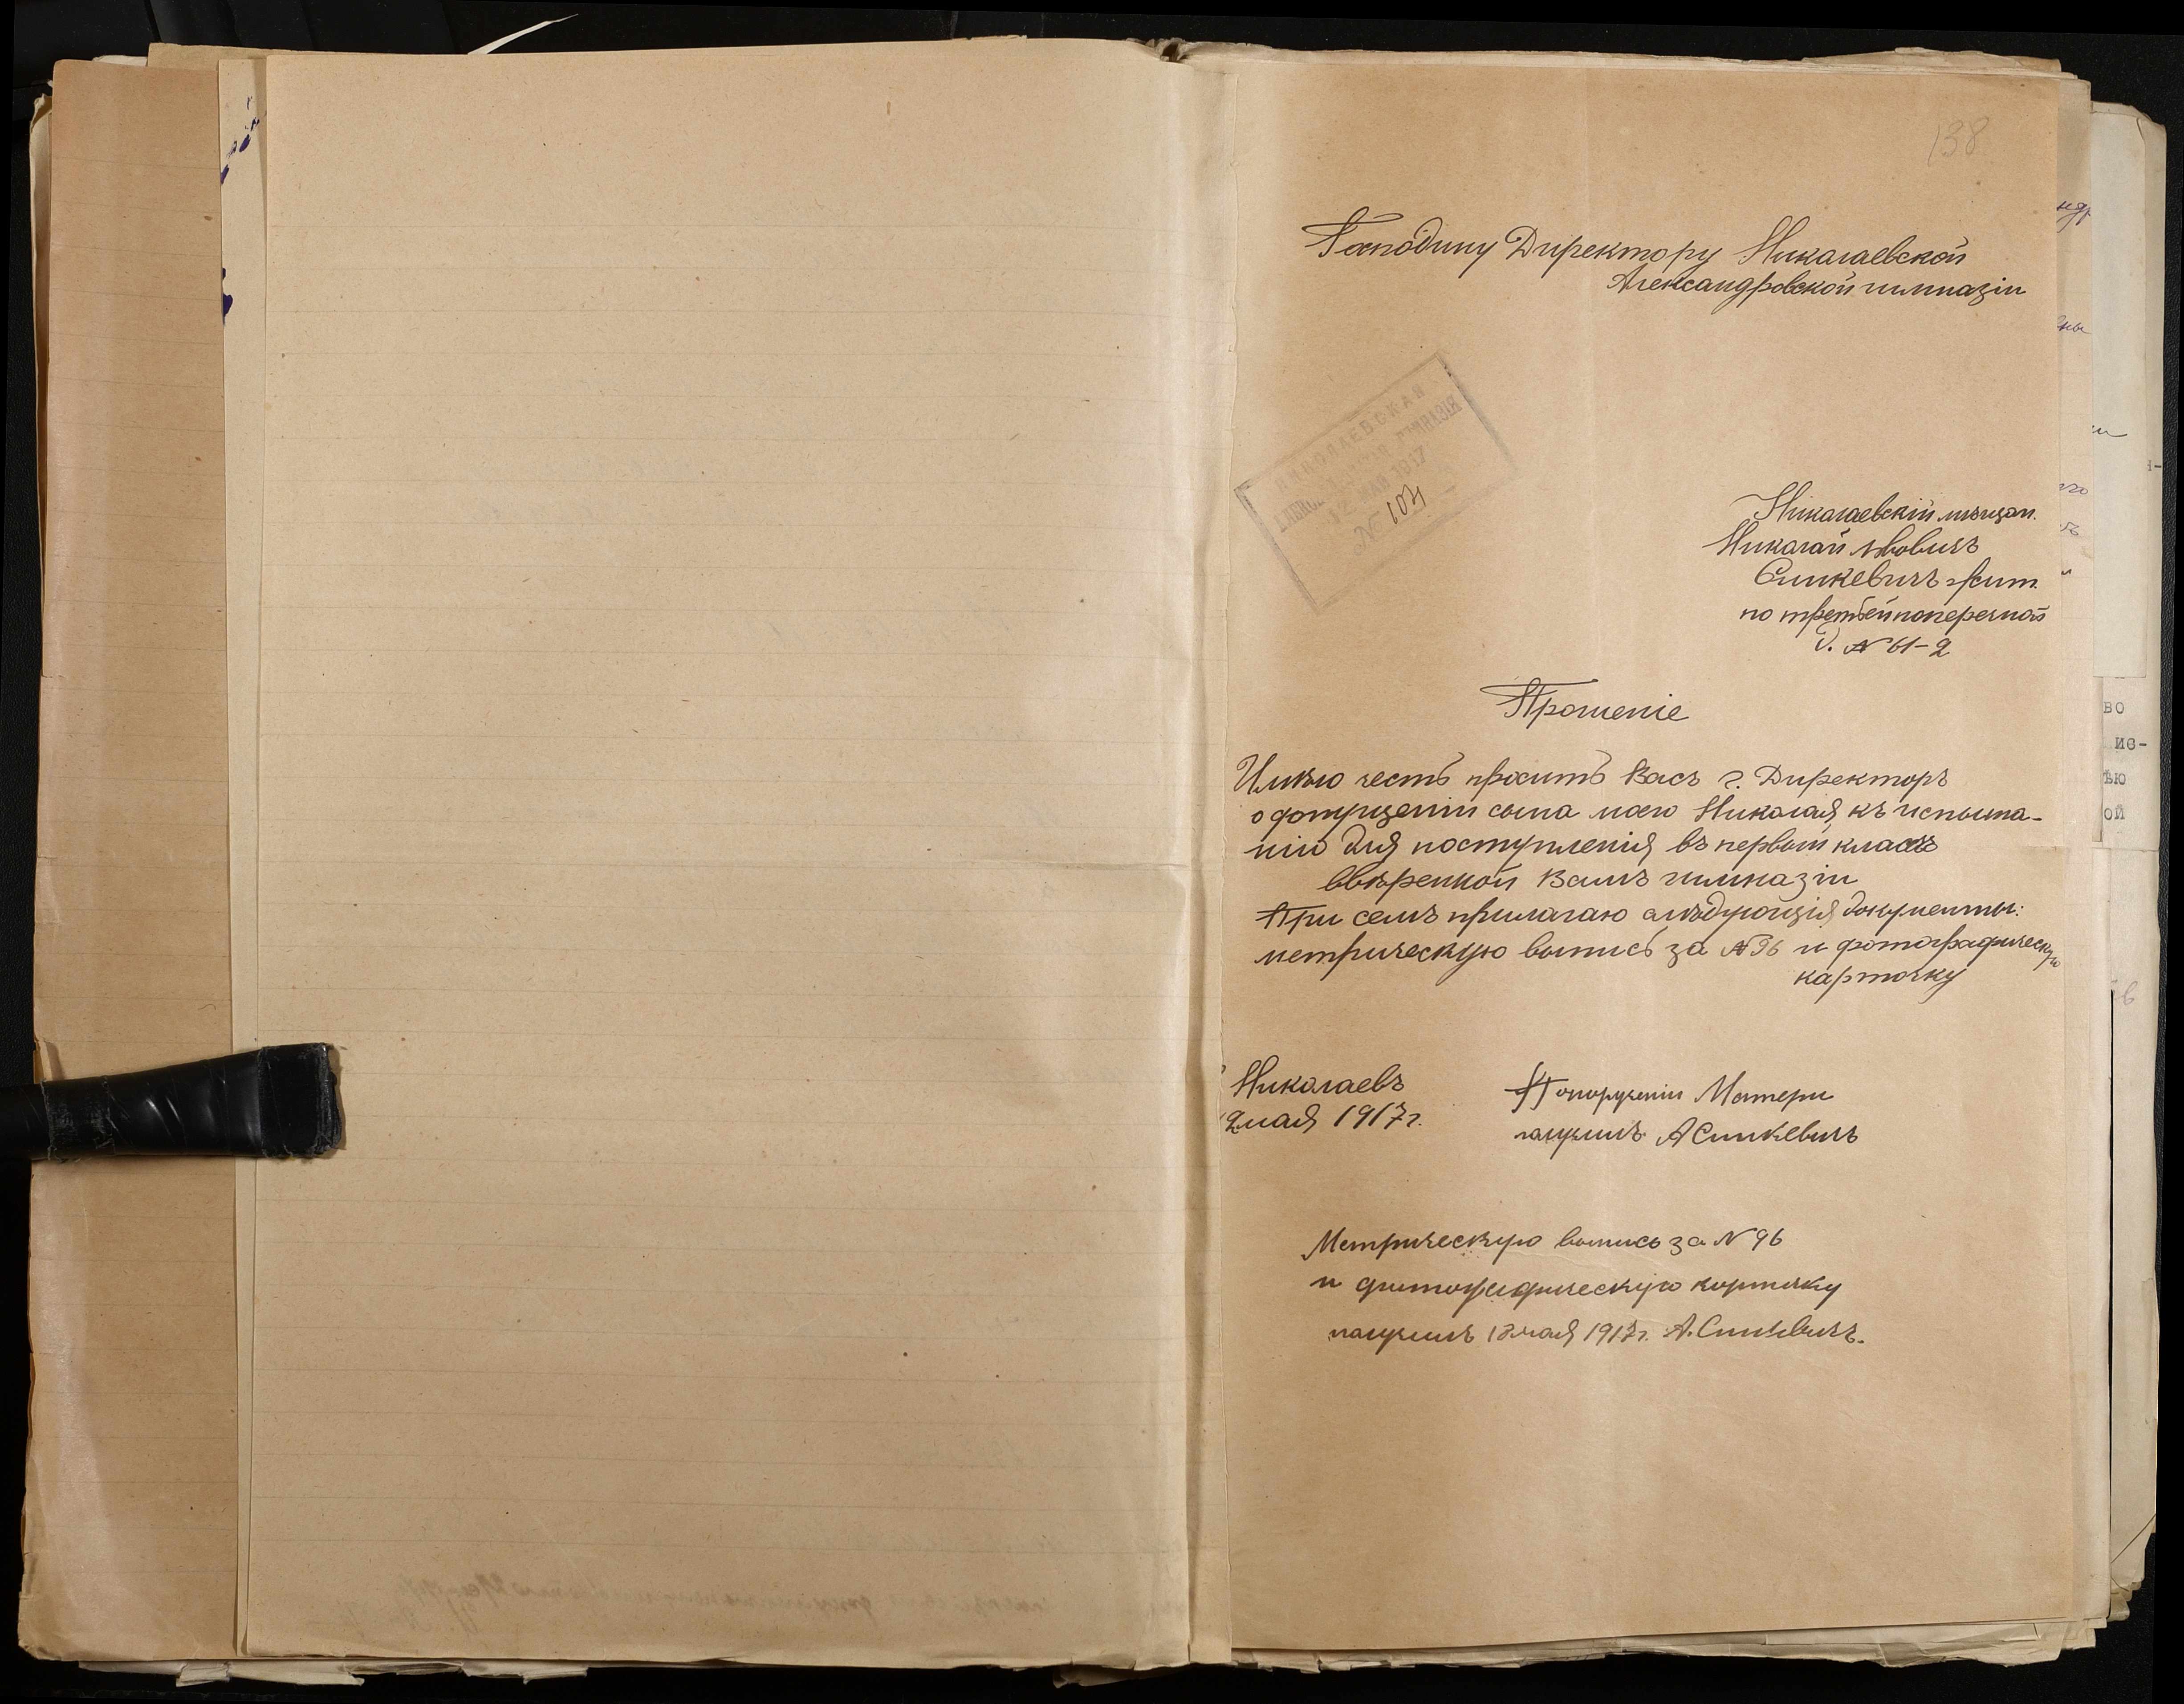 138
Господину Директору Николаевской
Александровской гимназіи
НИКОЛАЕВСКАЯ
ГИМНАЗІЯ
МАЯ 1917
№ 104
Николаевскій мѣщан.
Николай Львовичъ
Синкевичъ жит.
по третьей поперечной
д. № 61-2
Прошеніе
Имѣю честь просить Васъ г. Директоръ
о допущеніи сына моего Николая, къ испыта-
нію для поступленія въ первый классъ
ввѣренной Вамъ гимназіи
При семъ прилагаю слѣдующія документы:
метрическую выпись за № 96 и фотографическую
карточку
Николаевъ
2 мая 1917 г.
По порученіи Матери
получилъ АСинкевичъ
Метрическую выпись за № 96
и фотографическую карточку
получилъ 13 мая 1917 г. А. Синкевичъ.
во
ис-
ѣю
ой